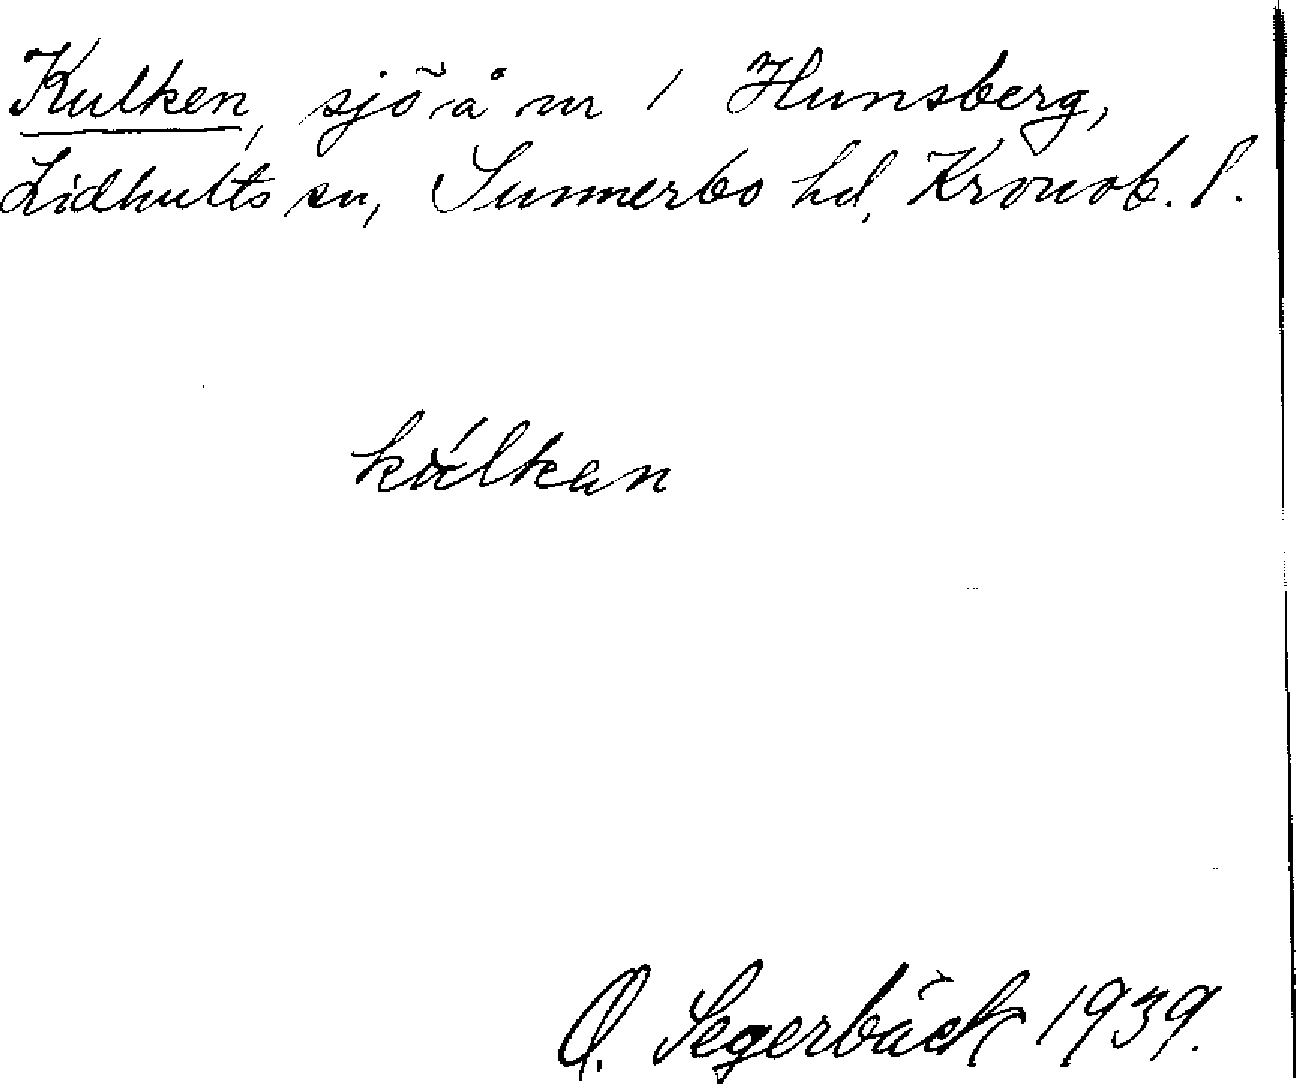 Kulken, sjö å nr 1 Hunsberg,
Lidhults sn, Sunnerbo hd, Kronob. l.
kúlkan
O. Segerbäck 1939.